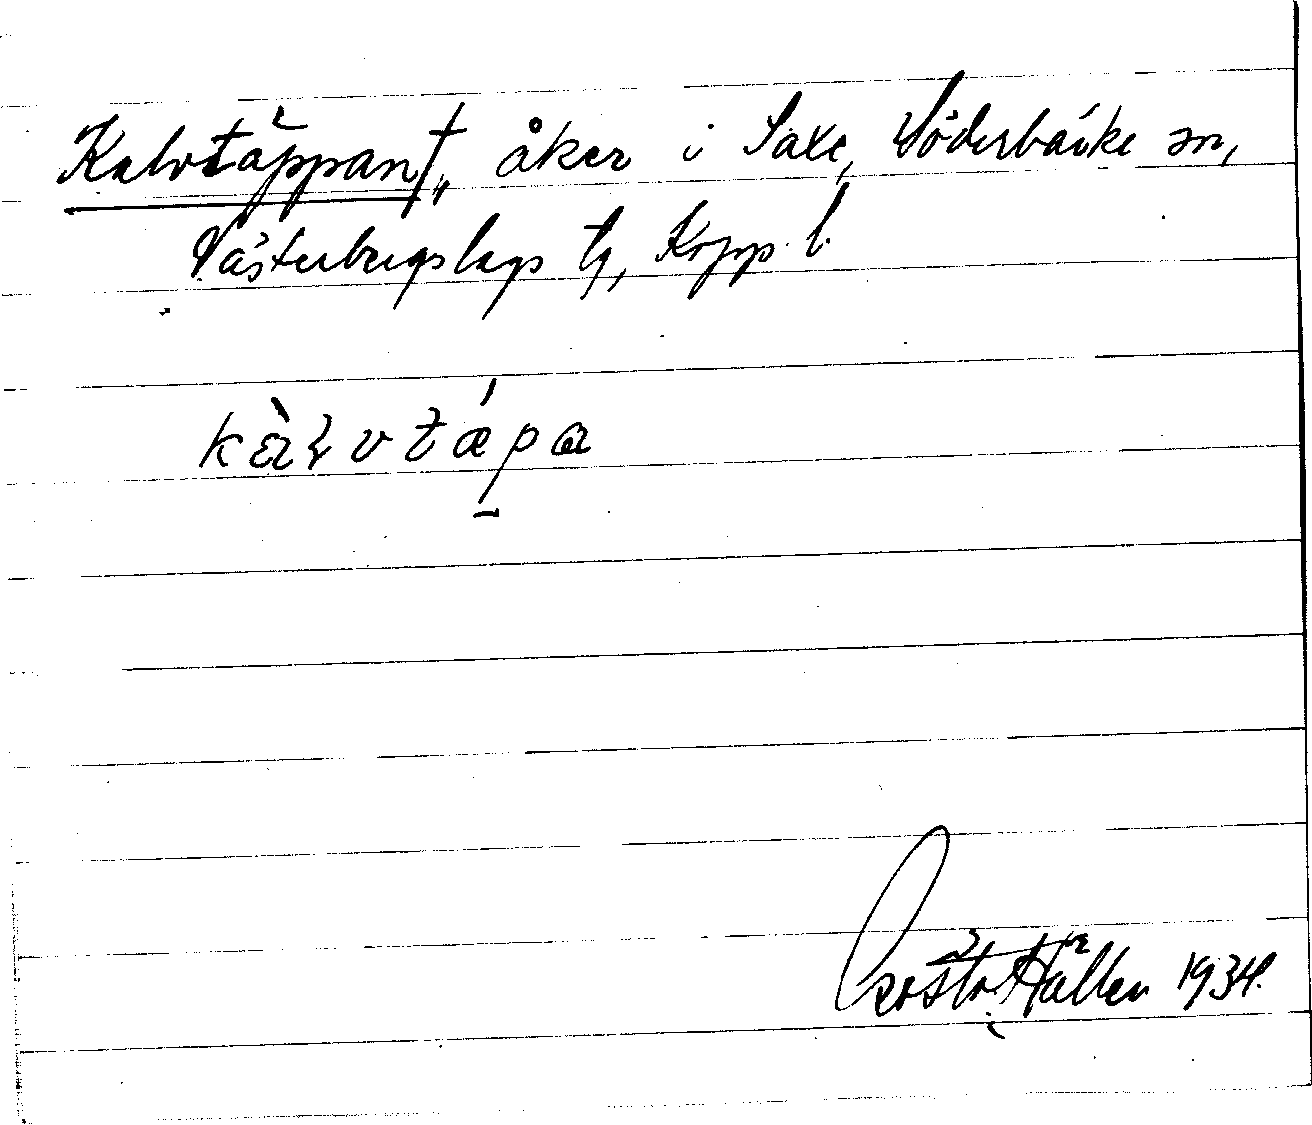 Kalvtäppan†, åker i Saxe, Söderbärke sn,
Västerbergslags tg, Kopp. l.
kàɽvtǽpa
Gösta Hållen 1934.